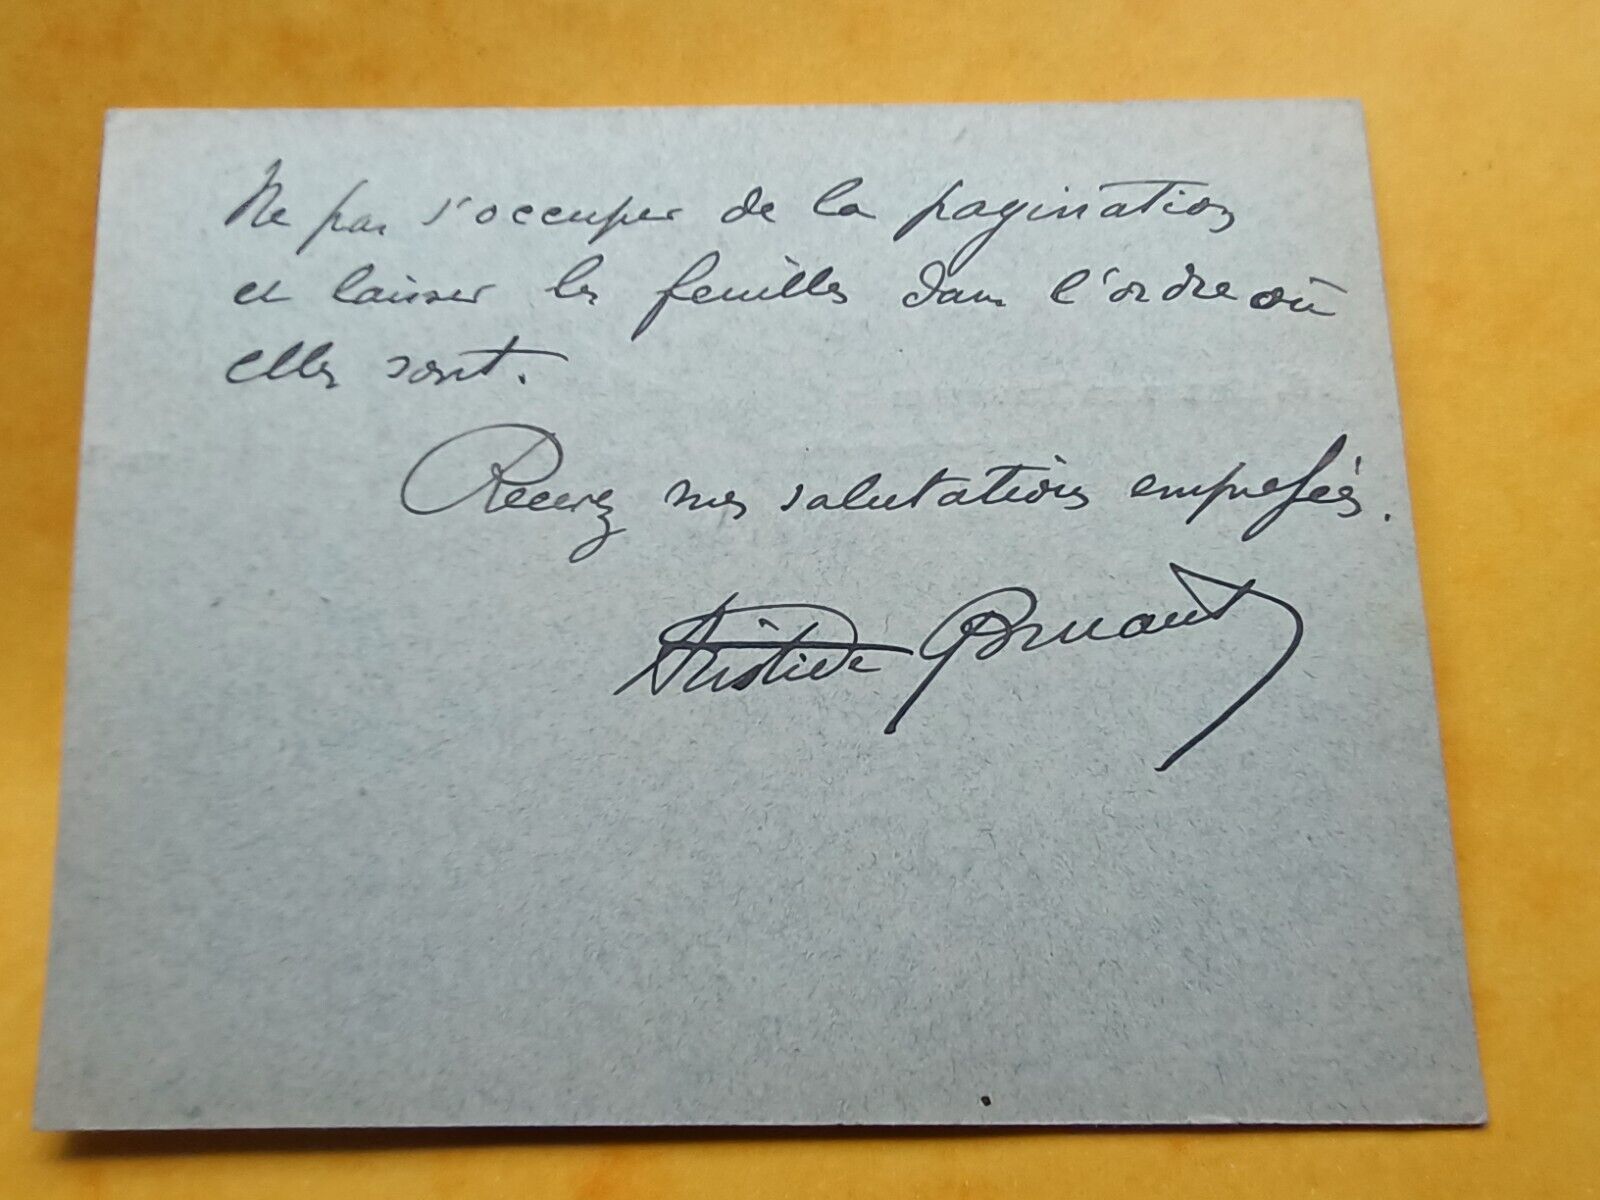 Ne pas s'occuper de la pagination
et laisser les feuilles dans l'ordre où
elles sont.
Recevez mes salutations empressées.
Aristide Bruant